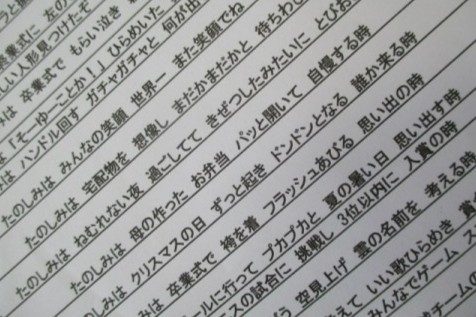 卒業式に 左の
しい人形見つけたぞ
は 卒業式で もらい泣き
「そーゆーことか！」 ひらめいた
は ハンドル回す ガチャガチャと 何が出
たのしみは みんなの笑顔 世界一 また笑顔でね
たのしみは 宅配物を 想像し まだかまだかと 待ちわび
たのしみは ねむれない夜 過ごしてて きぜつしたみたいに とびお
たのしみは 母の作った お弁当 パッと開いて 自慢する時
たのしみは クリスマスの日 ずっと起き ドンドンとなる 誰か来る時
しみは 卒業式で 袴を着 フラッシュあびる 思い出の時
ールに行って プカプカと 夏の暑い日 思い出す時
スの試合に 挑戦し 3位以内に 入賞の時
空見上げ 雲の名前を 考える時
えて いい歌ひらめき
みんなでゲーム
チーム